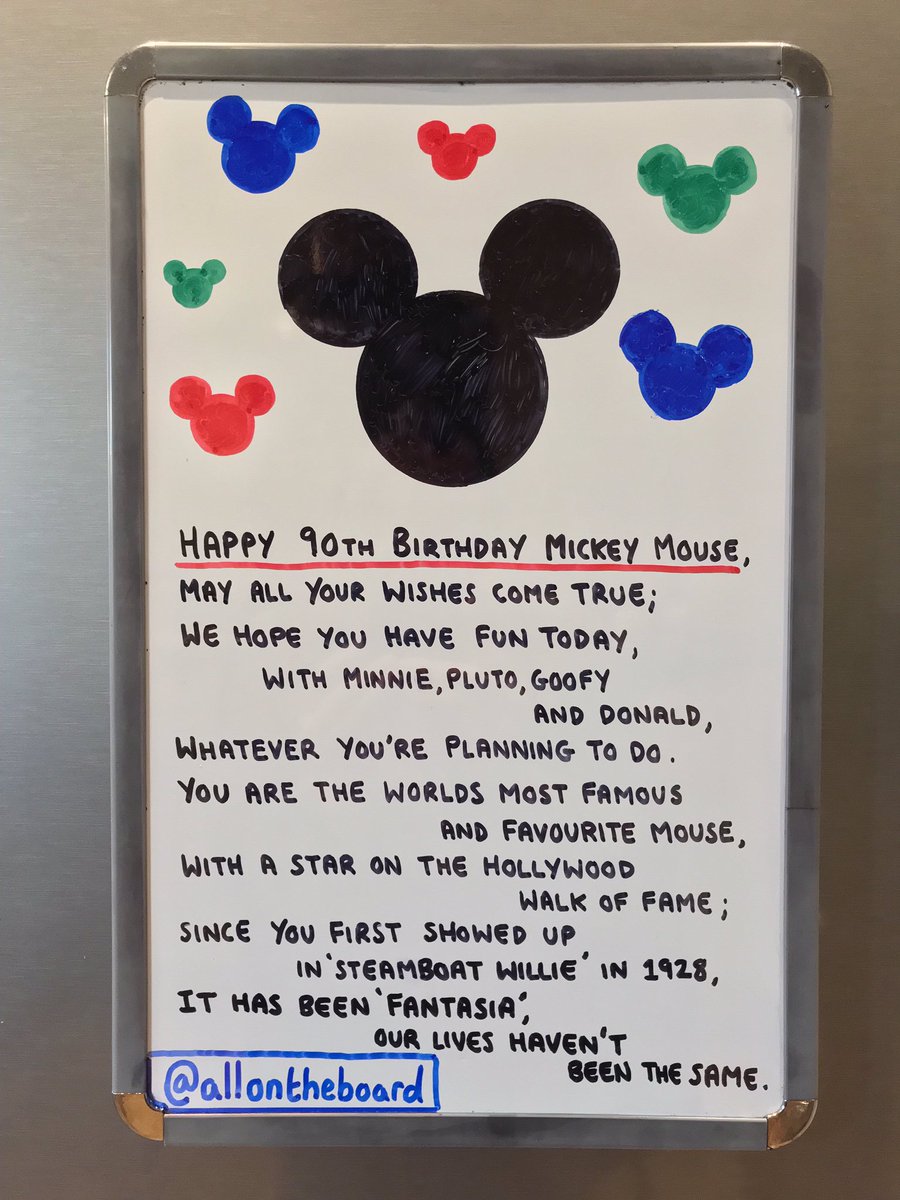 HAPPY 90TH BIRTHDAY MICKEY MOUSE,
MAY ALL YOUR WISHES COME TRUE;
WE HOPE YOU HAVE FUN TODAY,
WITH MINNIE, PLUTO, GOOFY
AND DONALD,
WHATEVER YOU'RE PLANNING TO DO.
YOU ARE THE WORLDS MOST FAMOUS
AND FAVOURITE MOUSE,
WITH A STAR ON THE HOLLYWOOD
WALK OF FAME;
SINCE YOU FIRST SHOWED UP
IN 'STEAMBOAT WILLIE' IN 1928,
IT HAS BEEN 'FANTASIA',
OUR LIVES HAVEN'T
BEEN THE SAME.
@allontheboard